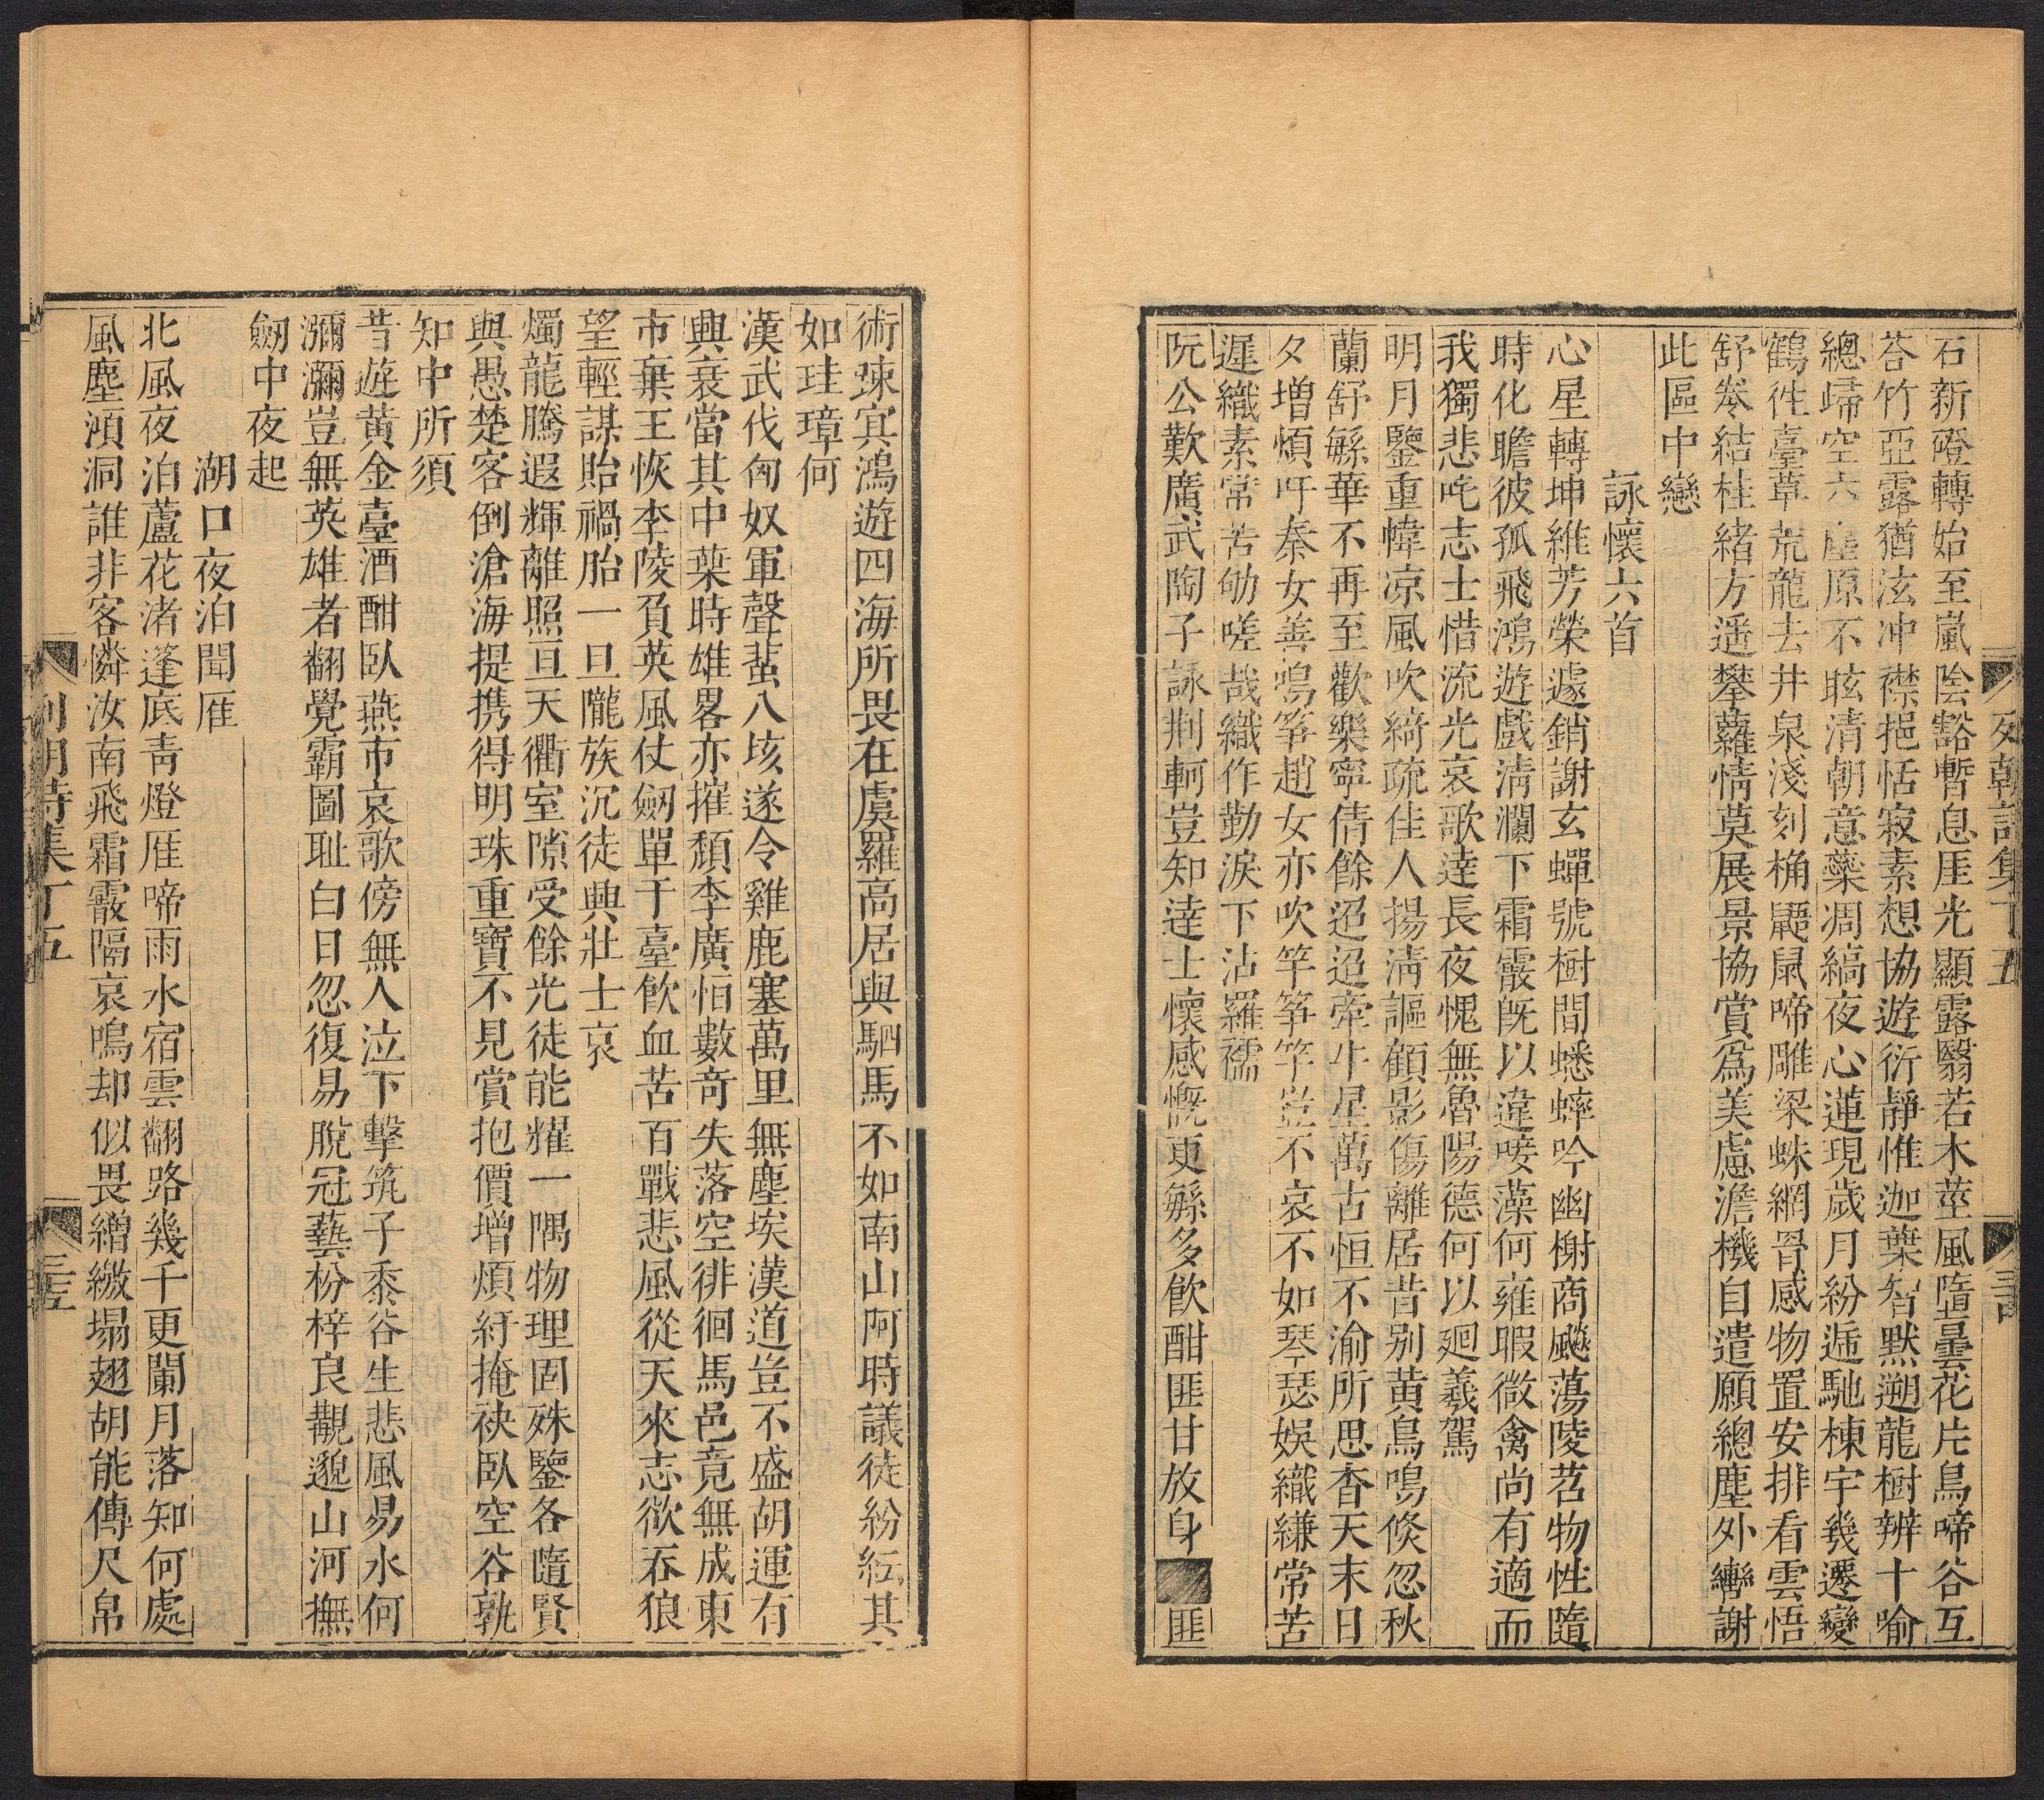 列朝詩集丁五
石新磴轉始至嵐陰豁暫息厓光顯露翳若木莖風墮曇花片鳥啼谷互
荅竹亞露猶泫冲襟挹恬寂素想協遊衍靜惟迦葉智默遡龍樹辨十喻
總歸空六塵原不眩清朝意蘂凋縞夜心蓮現歲月紛遞馳棟宇幾遷變
鶴徃臺草荒龍去井泉淺刻桷鼯鼠啼雕梁蛛網罥感物置安排看雲悟
舒卷結桂緒方遥攀蘿情莫展景協賞爲美慮澹機自遣願總塵外轡謝
此區中戀
詠懷六首
心星轉坤維芳榮遽銷謝玄蟬號樹間蟋蟀吟幽榭商飈蕩陵苕物性隨
時化瞻彼孤飛鴻遊戲淸瀾下霜霰旣以違唼藻何雍暇微禽尚有適而
我獨悲咤志士惜流光哀歌達長夜愧無魯陽德何以廻羲駕
明月鑒重幃凉風吹綺疏佳人揚淸謳顧影傷離居昔别黄鳥鳴倏忽秋
蘭舒繇華不再至歡樂寧倩餘迢迢牽牛星萬古恒不渝所思杳天末日
夕增煩吁秦女善鳴筝趙女亦吹竽筝竽豈不哀不如琴瑟娛織縑常苦
遲織素常苦劬嗟哉織作勤淚下沾羅襦
阮公歎廣武陶子詠荆軻豈知達士懷感慨更繇多飮酣匪甘放身匪
術竦寘鴻遊四海所畏在虞羅高居與駟馬不如南山阿時議徒紛紜其
如珪璋何
漢武伐匈奴軍聲蜚八垓遂令雞鹿塞萬里無塵埃漢道豈不盛胡運有
興衰當其中葉時雄畧亦摧頽李廣怕數奇失落空徘徊馬邑竟無成東
市棄王恢李陵負英風仗劒單于臺飮血苦百戰悲風從天來志欲吞狼
望輕謀貽禍胎一旦隴族沉徒興壯士哀
燭龍騰遐輝離照亘天衢室隙受餘光徒能耀一隅物理固殊鑒各隨賢
與愚楚客倒滄海提携得明珠重寶不見賞抱價增煩紆掩袂臥空谷孰
知中所須
昔遊黄金臺酒酣臥燕市哀歌傍無人泣下擊筑子黍谷生悲風易水何
瀰瀰豈無英雄者翻覺霸圖耻白日忽復易脫冠藝枌梓良覯邈山河撫
劒中夜起
湖口夜泊聞雁
北風夜泊蘆花渚蓬底靑燈雁啼雨水宿雲翻路幾千更闌月落知何處
風塵澒洞誰非客憐汝南飛霜霰隔哀鳴却似畏繒繳塌翅胡能傳尺帛
列朝詩集丁五